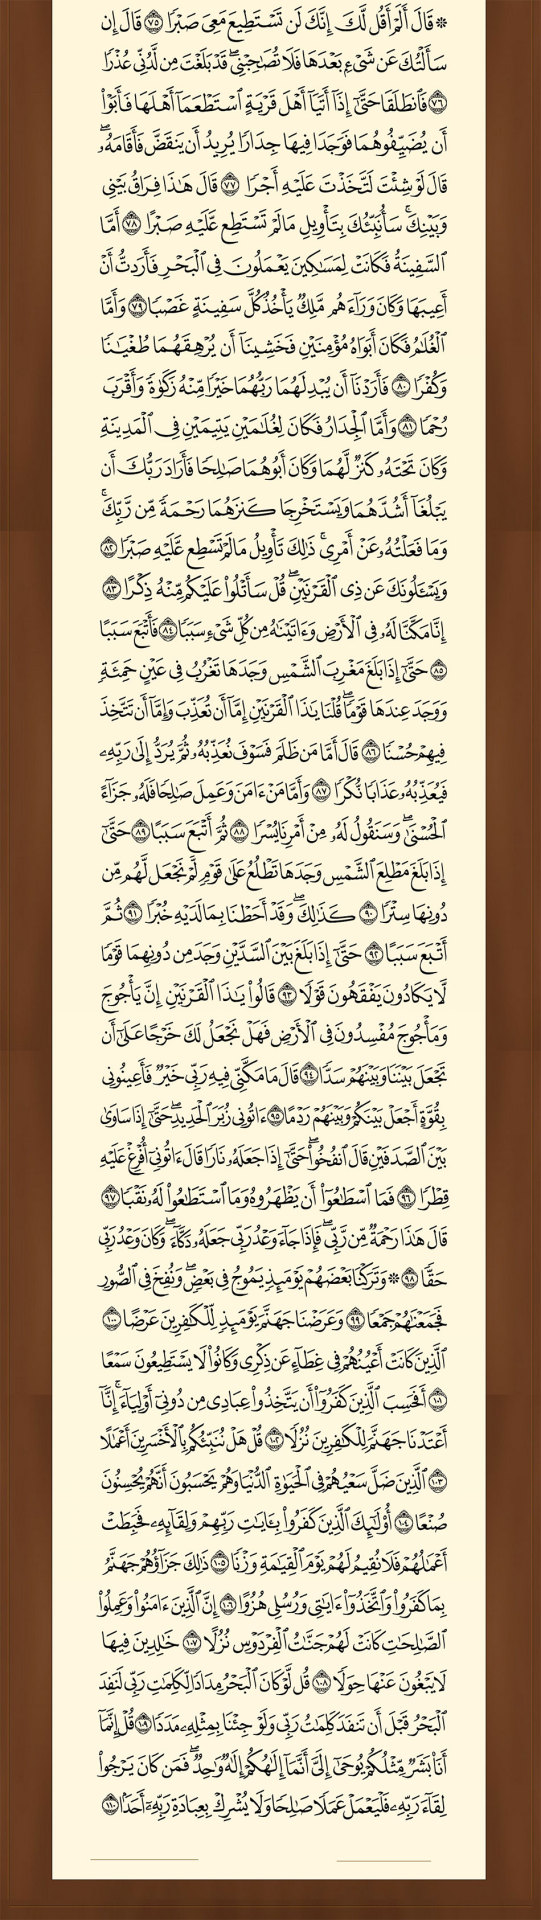 ۞ قَالَ أَلَمْ أَقُل لَّكَ إِنَّكَ لَن تَسْتَطِيعَ مَعِىَ صَبْرًا ٧٥ قَالَ إِن
سَأَلْتُكَ عَن شَىْءٍۭ بَعْدَهَا فَلَا تُصَـٰحِبْنِى ۖ قَدْ بَلَغْتَ مِن لَّدُنِّى عُذْرًا
٧٦ فَٱنطَلَقَا حَتَّىٰٓ إِذَآ أَتَيَآ أَهْلَ قَرْيَةٍ ٱسْتَطْعَمَآ أَهْلَهَا فَأَبَوْا۟
أَن يُضَيِّفُوهُمَا فَوَجَدَا فِيهَا جِدَارًا يُرِيدُ أَن يَنقَضَّ فَأَقَامَهُۥ ۖ
قَالَ لَوْ شِئْتَ لَتَّخَذْتَ عَلَيْهِ أَجْرًا ٧٧ قَالَ هَـٰذَا فِرَاقُ بَيْنِى
وَبَيْنِكَ ۚ سَأُنَبِّئُكَ بِتَأْوِيلِ مَا لَمْ تَسْتَطِع عَّلَيْهِ صَبْرًا ٧٨ أَمَّا
ٱلسَّفِينَةُ فَكَانَتْ لِمَسَـٰكِينَ يَعْمَلُونَ فِى ٱلْبَحْرِ فَأَرَدتُّ أَنْ
أَعِيبَهَا وَكَانَ وَرَآءَهُم مَّلِكٌ يَأْخُذُ كُلَّ سَفِينَةٍ غَصْبًا ٧٩ وَأَمَّا
ٱلْغُلَـٰمُ فَكَانَ أَبَوَاهُ مُؤْمِنَيْنِ فَخَشِينَآ أَن يُرْهِقَهُمَا طُغْيَـٰنًا
وَكُفْرًا ٨٠ فَأَرَدْنَآ أَن يُبْدِلَهُمَا رَبُّهُمَا خَيْرًا مِّنْهُ زَكَوٰةً وَأَقْرَبَ
رُحْمًا ٨١ وَأَمَّا ٱلْجِدَارُ فَكَانَ لِغُلَـٰمَيْنِ يَتِيمَيْنِ فِى ٱلْمَدِينَةِ
وَكَانَ تَحْتَهُۥ كَنزٌ لَّهُمَا وَكَانَ أَبُوهُمَا صَـٰلِحًا فَأَرَادَ رَبُّكَ أَن
يَبْلُغَآ أَشُدَّهُمَا وَيَسْتَخْرِجَا كَنزَهُمَا رَحْمَةً مِّن رَّبِّكَ ۚ
وَمَا فَعَلْتُهُۥ عَنْ أَمْرِى ۚ ذَٰلِكَ تَأْوِيلُ مَا لَمْ تَسْطِع عَّلَيْهِ صَبْرًا ٨٢
وَيَسْـَٔلُونَكَ عَن ذِى ٱلْقَرْنَيْنِ ۖ قُلْ سَأَتْلُوا۟ عَلَيْكُم مِّنْهُ ذِكْرًا ٨٣
إِنَّا مَكَّنَّا لَهُۥ فِى ٱلْأَرْضِ وَءَاتَيْنَـٰهُ مِن كُلِّ شَىْءٍ سَبَبًا ٨٤ فَأَتْبَعَ سَبَبًا
٨٥ حَتَّىٰٓ إِذَا بَلَغَ مَغْرِبَ ٱلشَّمْسِ وَجَدَهَا تَغْرُبُ فِى عَيْنٍ حَمِئَةٍ
وَوَجَدَ عِندَهَا قَوْمًا ۗ قُلْنَا يَـٰذَا ٱلْقَرْنَيْنِ إِمَّآ أَن تُعَذِّبَ وَإِمَّآ أَن تَتَّخِذَ
فِيهِمْ حُسْنًا ٨٦ قَالَ أَمَّا مَن ظَلَمَ فَسَوْفَ نُعَذِّبُهُۥ ثُمَّ يُرَدُّ إِلَىٰ رَبِّهِۦ
فَيُعَذِّبُهُۥ عَذَابًا نُّكْرًا ٨٧ وَأَمَّا مَنْ ءَامَنَ وَعَمِلَ صَـٰلِحًا فَلَهُۥ جَزَآءً
ٱلْحُسْنَىٰ ۖ وَسَنَقُولُ لَهُۥ مِنْ أَمْرِنَا يُسْرًا ٨٨ ثُمَّ أَتْبَعَ سَبَبًا ٨٩ حَتَّىٰٓ
إِذَا بَلَغَ مَطْلِعَ ٱلشَّمْسِ وَجَدَهَا تَطْلُعُ عَلَىٰ قَوْمٍ لَّمْ نَجْعَل لَّهُم مِّن
دُونِهَا سِتْرًا ٩٠ كَذَٰلِكَ ۖ وَقَدْ أَحَطْنَا بِمَا لَدَيْهِ خُبْرًا ٩١ ثُمَّ
أَتْبَعَ سَبَبًا ٩٢ حَتَّىٰٓ إِذَا بَلَغَ بَيْنَ ٱلسَّدَّيْنِ وَجَدَ مِن دُونِهِمَا قَوْمًا
لَّا يَكَادُونَ يَفْقَهُونَ قَوْلًا ٩٣ قَالُوا۟ يَـٰذَا ٱلْقَرْنَيْنِ إِنَّ يَأْجُوجَ
وَمَأْجُوجَ مُفْسِدُونَ فِى ٱلْأَرْضِ فَهَلْ نَجْعَلُ لَكَ خَرْجًا عَلَىٰٓ أَن
تَجْعَلَ بَيْنَنَا وَبَيْنَهُمْ سَدًّا ٩٤ قَالَ مَا مَكَّنِّى فِيهِ رَبِّى خَيْرٌ فَأَعِينُونِى
بِقُوَّةٍ أَجْعَلْ بَيْنَكُمْ وَبَيْنَهُمْ رَدْمًا ٩٥ ءَاتُونِى زُبَرَ ٱلْحَدِيدِ ۖ حَتَّىٰٓ إِذَا سَاوَىٰ
بَيْنَ ٱلصَّدَفَيْنِ قَالَ ٱنفُخُوا۟ ۖ حَتَّىٰٓ إِذَا جَعَلَهُۥ نَارًا قَالَ ءَاتُونِىٓ أُفْرِغْ عَلَيْهِ
قِطْرًا ٩٦ فَمَا ٱسْطَـٰعُوٓا۟ أَن يَظْهَرُوهُ وَمَا ٱسْتَطَـٰعُوا۟ لَهُۥ نَقْبًا ٩٧
قَالَ هَـٰذَا رَحْمَةٌ مِّن رَّبِّى ۖ فَإِذَا جَآءَ وَعْدُ رَبِّى جَعَلَهُۥ دَكَّآءَ ۖ وَكَانَ وَعْدُ رَبِّى
حَقًّا ٩٨ ۞ وَتَرَكْنَا بَعْضَهُمْ يَوْمَئِذٍ يَمُوجُ فِى بَعْضٍ ۖ وَنُفِخَ فِى ٱلصُّورِ
فَجَمَعْنَـٰهُمْ جَمْعًا ٩٩ وَعَرَضْنَا جَهَنَّمَ يَوْمَئِذٍ لِّلْكَـٰفِرِينَ عَرْضًا ١٠٠
ٱلَّذِينَ كَانَتْ أَعْيُنُهُمْ فِى غِطَآءٍ عَن ذِكْرِى وَكَانُوا۟ لَا يَسْتَطِيعُونَ سَمْعًا
١٠١ أَفَحَسِبَ ٱلَّذِينَ كَفَرُوٓا۟ أَن يَتَّخِذُوا۟ عِبَادِى مِن دُونِىٓ أَوْلِيَآءَ ۚ إِنَّآ
أَعْتَدْنَا جَهَنَّمَ لِلْكَـٰفِرِينَ نُزُلًا ١٠٢ قُلْ هَلْ نُنَبِّئُكُم بِٱلْأَخْسَرِينَ أَعْمَـٰلًا
١٠٣ ٱلَّذِينَ ضَلَّ سَعْيُهُمْ فِى ٱلْحَيَوٰةِ ٱلدُّنْيَا وَهُمْ يَحْسَبُونَ أَنَّهُمْ يُحْسِنُونَ
صُنْعًا ١٠٤ أُو۟لَـٰٓئِكَ ٱلَّذِينَ كَفَرُوا۟ بِـَٔايَـٰتِ رَبِّهِمْ وَلِقَآئِهِۦ فَحَبِطَتْ
أَعْمَـٰلُهُمْ فَلَا نُقِيمُ لَهُمْ يَوْمَ ٱلْقِيَـٰمَةِ وَزْنًا ١٠٥ ذَٰلِكَ جَزَآؤُهُمْ جَهَنَّمُ
بِمَا كَفَرُوا۟ وَٱتَّخَذُوٓا۟ ءَايَـٰتِى وَرُسُلِى هُزُوًا ١٠٦ إِنَّ ٱلَّذِينَ ءَامَنُوا۟ وَعَمِلُوا۟
ٱلصَّـٰلِحَـٰتِ كَانَتْ لَهُمْ جَنَّـٰتُ ٱلْفِرْدَوْسِ نُزُلًا ١٠٧ خَـٰلِدِينَ فِيهَا
لَا يَبْغُونَ عَنْهَا حِوَلًا ١٠٨ قُل لَّوْ كَانَ ٱلْبَحْرُ مِدَادًا لِّكَلِمَـٰتِ رَبِّى لَنَفِدَ
ٱلْبَحْرُ قَبْلَ أَن تَنفَدَ كَلِمَـٰتُ رَبِّى وَلَوْ جِئْنَا بِمِثْلِهِۦ مَدَدًا ١٠٩ قُلْ إِنَّمَآ
أَنَا۠ بَشَرٌ مِّثْلُكُمْ يُوحَىٰٓ إِلَىَّ أَنَّمَآ إِلَـٰهُكُمْ إِلَـٰهٌ وَٰحِدٌ ۖ فَمَن كَانَ يَرْجُوا۟
لِقَآءَ رَبِّهِۦ فَلْيَعْمَلْ عَمَلًا صَـٰلِحًا وَلَا يُشْرِكْ بِعِبَادَةِ رَبِّهِۦٓ أَحَدًۢا ١١٠